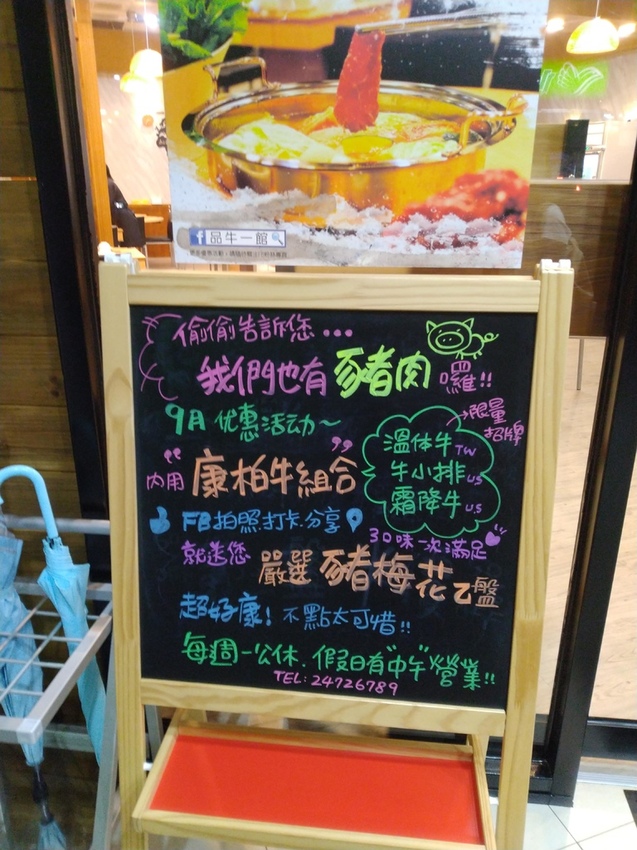 品牛一館
偷偷告訴您...
我們也有豬肉囉!!
9月优惠活动~
限量
招牌
溫体牛TW
牛小排US
霜降牛U.S
內用"康柏牛組合"
3口味一次滿足
FB拍照打卡分享
就送您 嚴選豬梅花乙盤
超好康! 不點太可惜!!
每週一公休.假日有"中午"營業!!
TEL:24726789